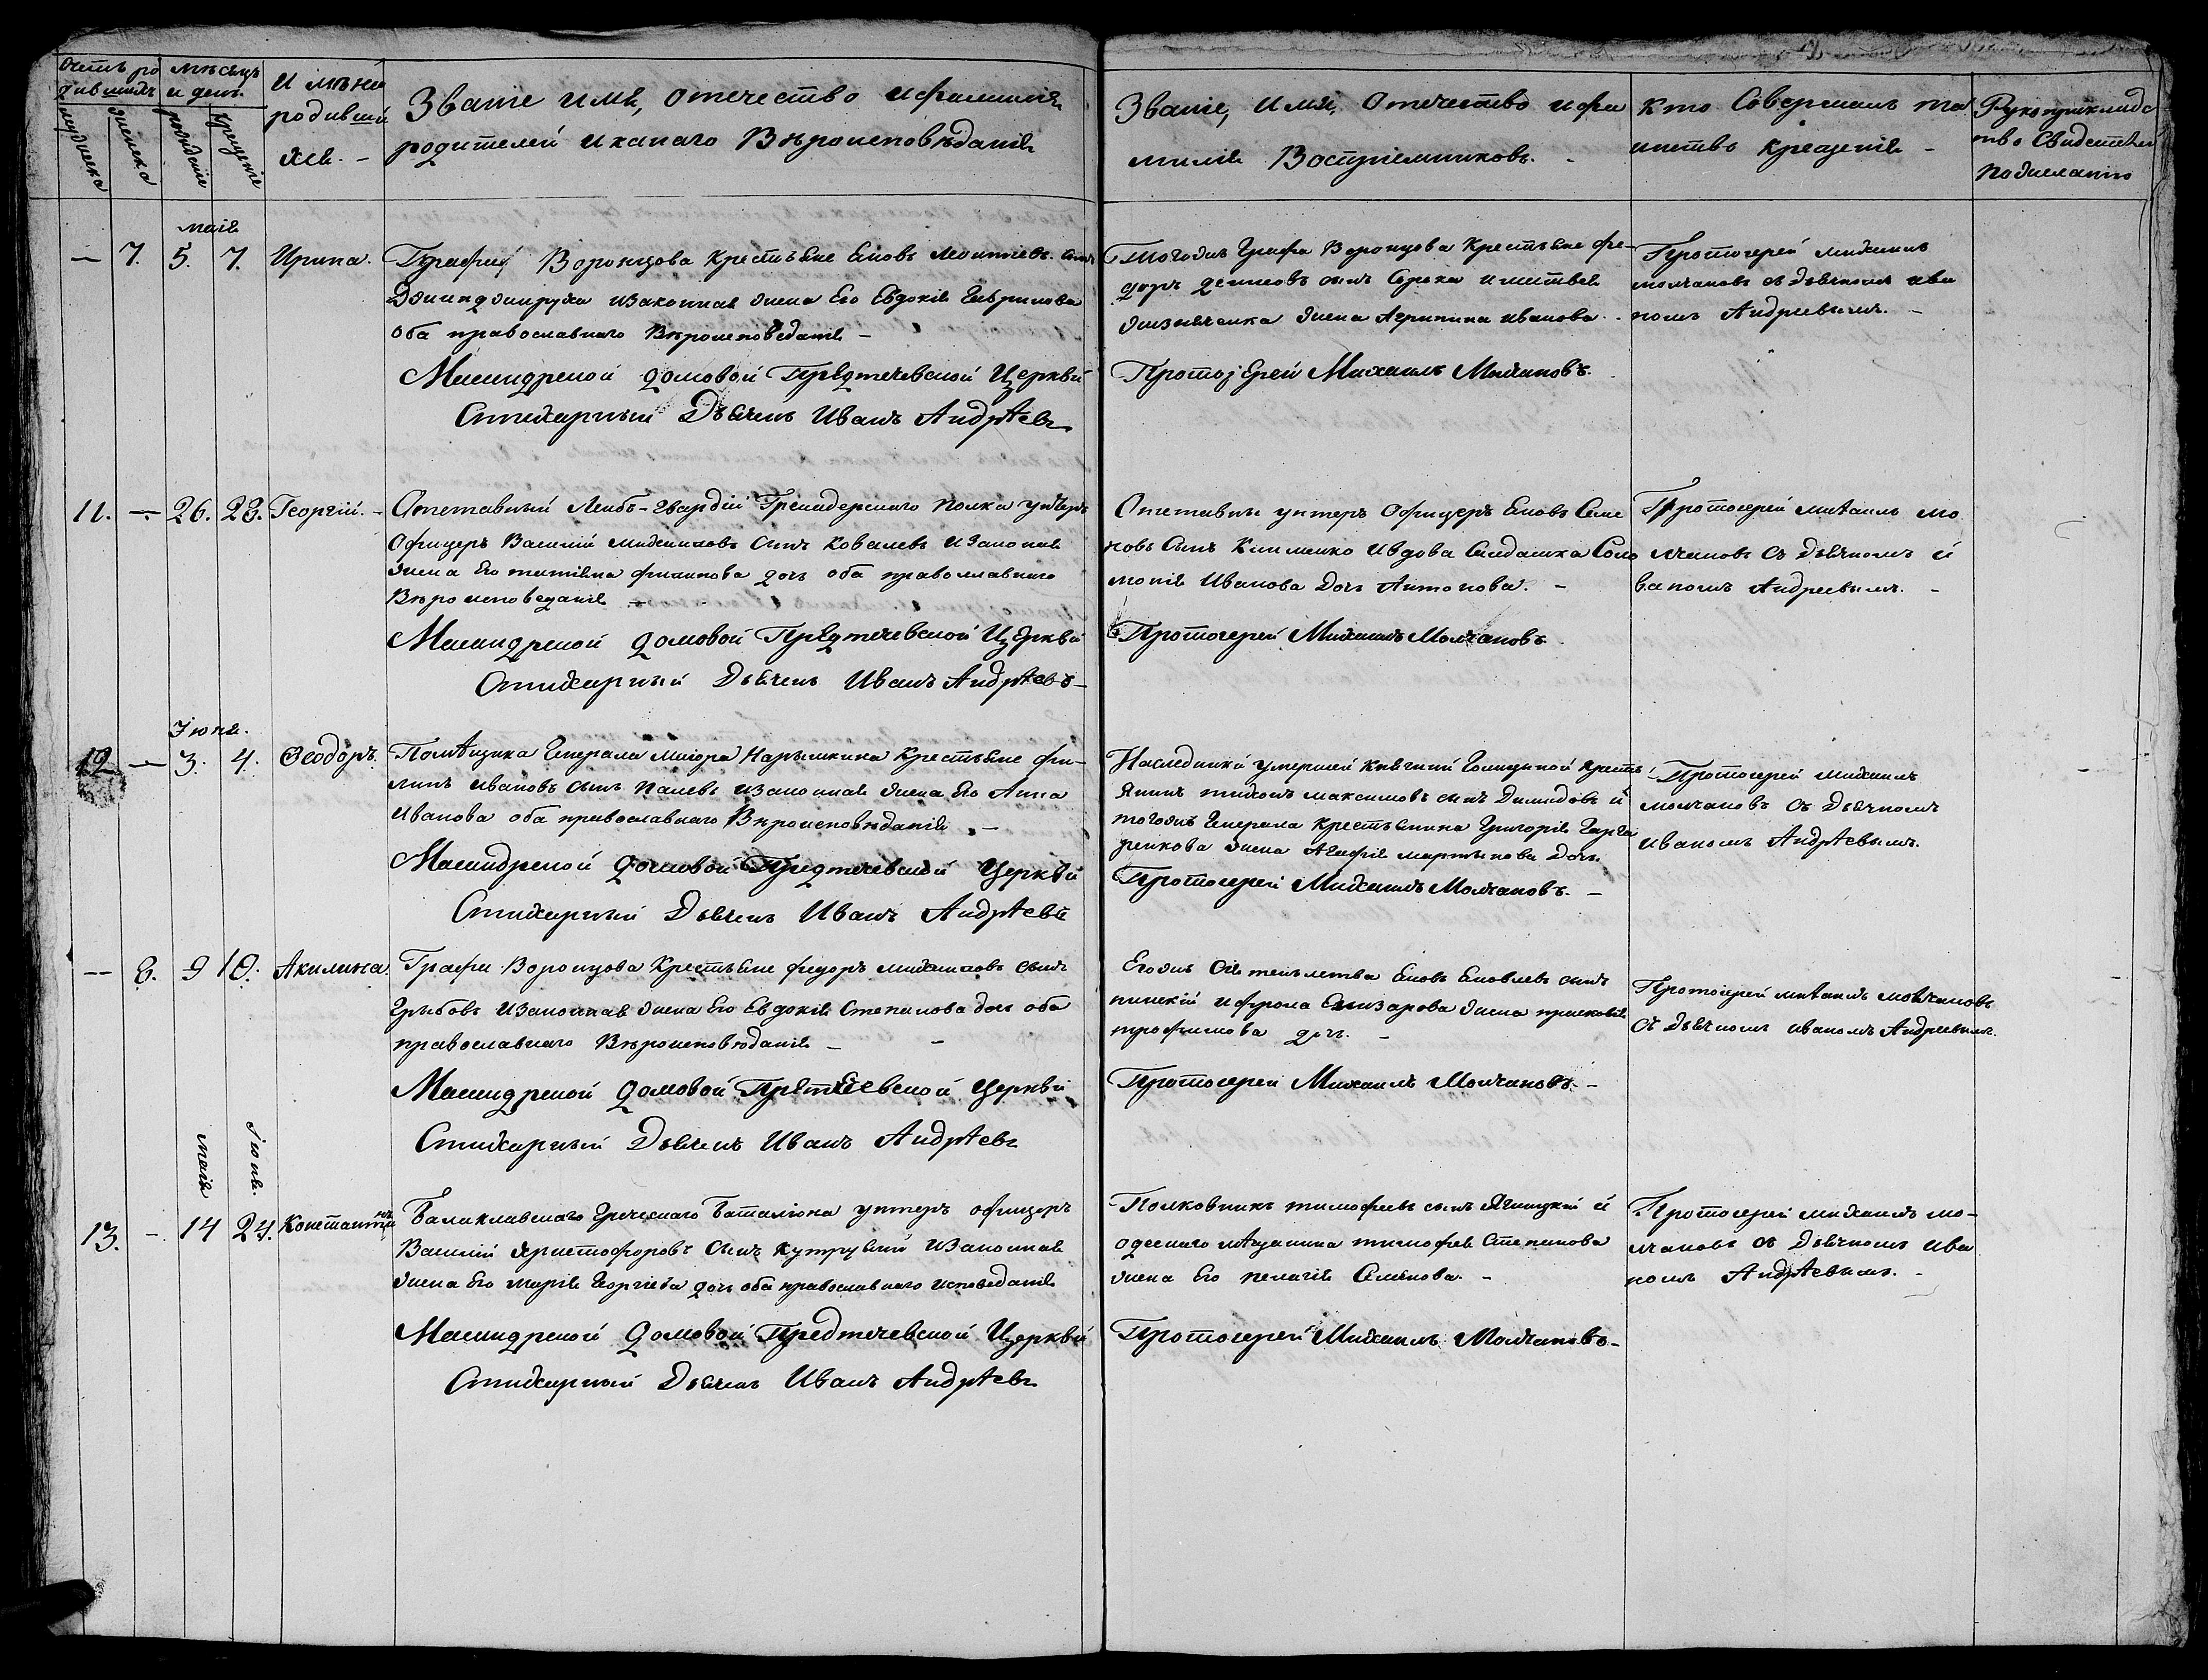 Счетъ ро
дившихъ
мѣсяцъ
и день
Имѣна
родивши
хся. –
мужеска
женска
рожденіе
крещеніе
Званіе имя, отечество и фамилія
родителей и какаго Вѣроисповѣданія
Званіе, имя, Отечество и фа
милія Воспріемниковъ. -
Кто Совершалъ та
инство крещенія -
Рукоприкладс
тво Свидетелей
по желанію
маія
— 7. 5. 7. Ирина.
Графа Воронцова Крестьяне Яковъ Леонтиевъ сынъ
и законная жена Его Евдокія Гаврилова
оба православнаго Вѣроисповеданія –
Масандрской домовой Предтечевской Церкви
Стихарный Дьячекъ Иванъ Андрѣевъ
Тогожъ Графа Воронцова Крестьяне фе-
доръ сынъ Сорока и
жена Агрипина иванова. -
Протоіерей Михаилъ Молчановъ.
Протоіерей михаилъ
молчановъ съ дьячкомъ ива
номъ Андреевымъ. -
11. — 26. 28. Георгій. -
Отставный Лейбъ-гвардіи Гренадерскаго полка унтеръ
Офицеръ Василій михаиловъ Сынъ Ковалевъ и законная
жена Его татіяна филипова дочь оба православнаго
Вѣроисповеданія —
Масандрской домовой Предтечевской Церкви
Стихарный Дьячекъ Иванъ Андрѣевъ –
Отставны унтеръ Офицеръ Яковъ Семе
новъ Сынъ Клименко и вдова Солдатка Соло
монія Иванова Дочь Антонова. -
Протоіерей Михаилъ Молчановъ
Протоіерей михаилъ мо
лчановъ Съ дьячкомъ и
ваномъ Андреевымъ. -
Іюня.
12 — 3. 4. Ѳеодоръ.
Помѣщика Генерала маіора Нарышкина Крестьяне фи-
липъ ивановъ сынъ и законная жена Его Анна
Иванова оба православнаго Вѣроисповѣданія. –
Масандрской домовой Предтечевской Церкви
Стихарный Дьячекъ Иванъ Андрѣевъ
Наследники умершей княгини Голицыной кресть
янинъ тихонъ максимовъ сынъ Демидовъ и
тогожъ Генерала Крестьянина Григорія
жена Агафія мартынова Дочь.
Протоіерей Михаилъ Молчановъ. –
Протоіерей михаилъ
молчановъ съ Дьячкомъ
Иваномъ Андрѣевымъ.
— 8. 9 10. Акилина.
Графа Воронцова Крестьяне федоръ михаиловъ сынъ
Грыбовъ и законная жена Его Евдокія Степанова дочь оба
православнаго Вѣроисповюданія – -
Масандрской домовой Церкви
Стихарный Дьячекъ Иванъ Андрѣевъ
Егожъ Сіятельства Яковъ Яковлевъ сынъ
и фрола Елизарова жена прасковія
трофимова дочь. -
Протоіерей Михаилъ Молчановъ. –
Протоіерей михаилъ молчановъ
Съ дьячкомъ иваномъ Андреевымъ.
маія
Іюня.
13. – 14 24. Константинъ
Балаклавскаго Греческаго Баталіона унтеръ офицеръ
Василій Христофоровъ Сынъ и законная
жена Его марія Георгіева дочь оба православнаго исповеданія
Масандрской домовой Предтечевской Церкви
Стихарный Дьячекъ Иванъ Андрѣевъ
Полковникъ тимофеевъ сынъ и
одескаго мѣщанина тимофея Степанова
жена Его пелагія Семенова. -
Протоіерей Михаилъ Молчановъ –
Протоіерей михаилъ мо-
лчановъ съ Дьячкомъ Ива
номъ Андрѣевымъ. -